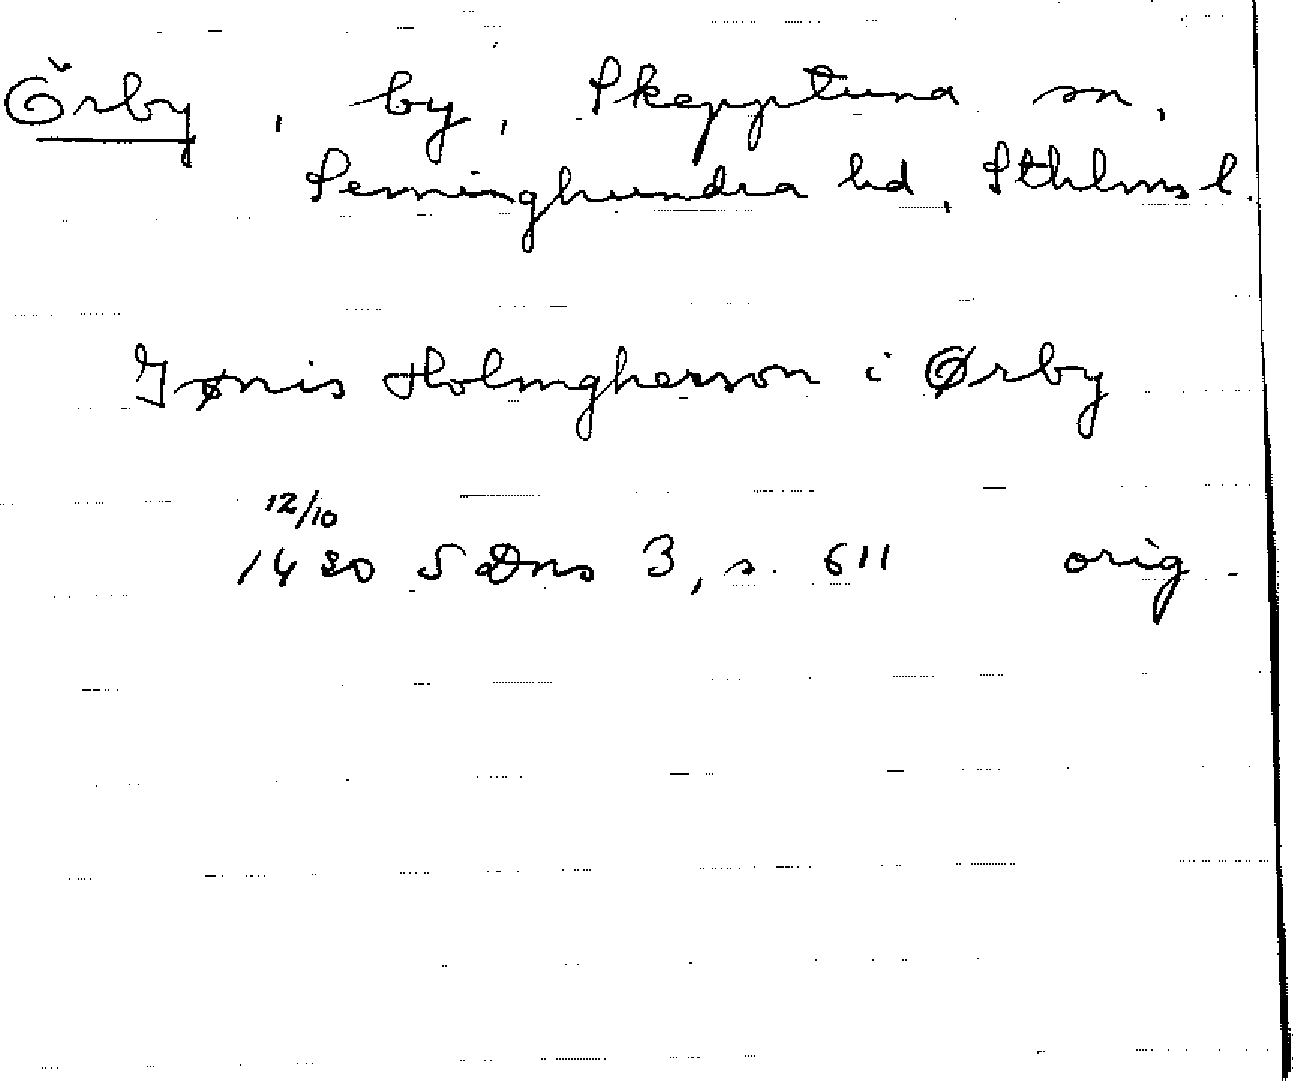 Örby, by, Skepptuna sn,
Seminghundra hd, Sthlms l.
Jønis Holmgherson i Ørby
12/10
1420 SDns 3, s. 611 orig.